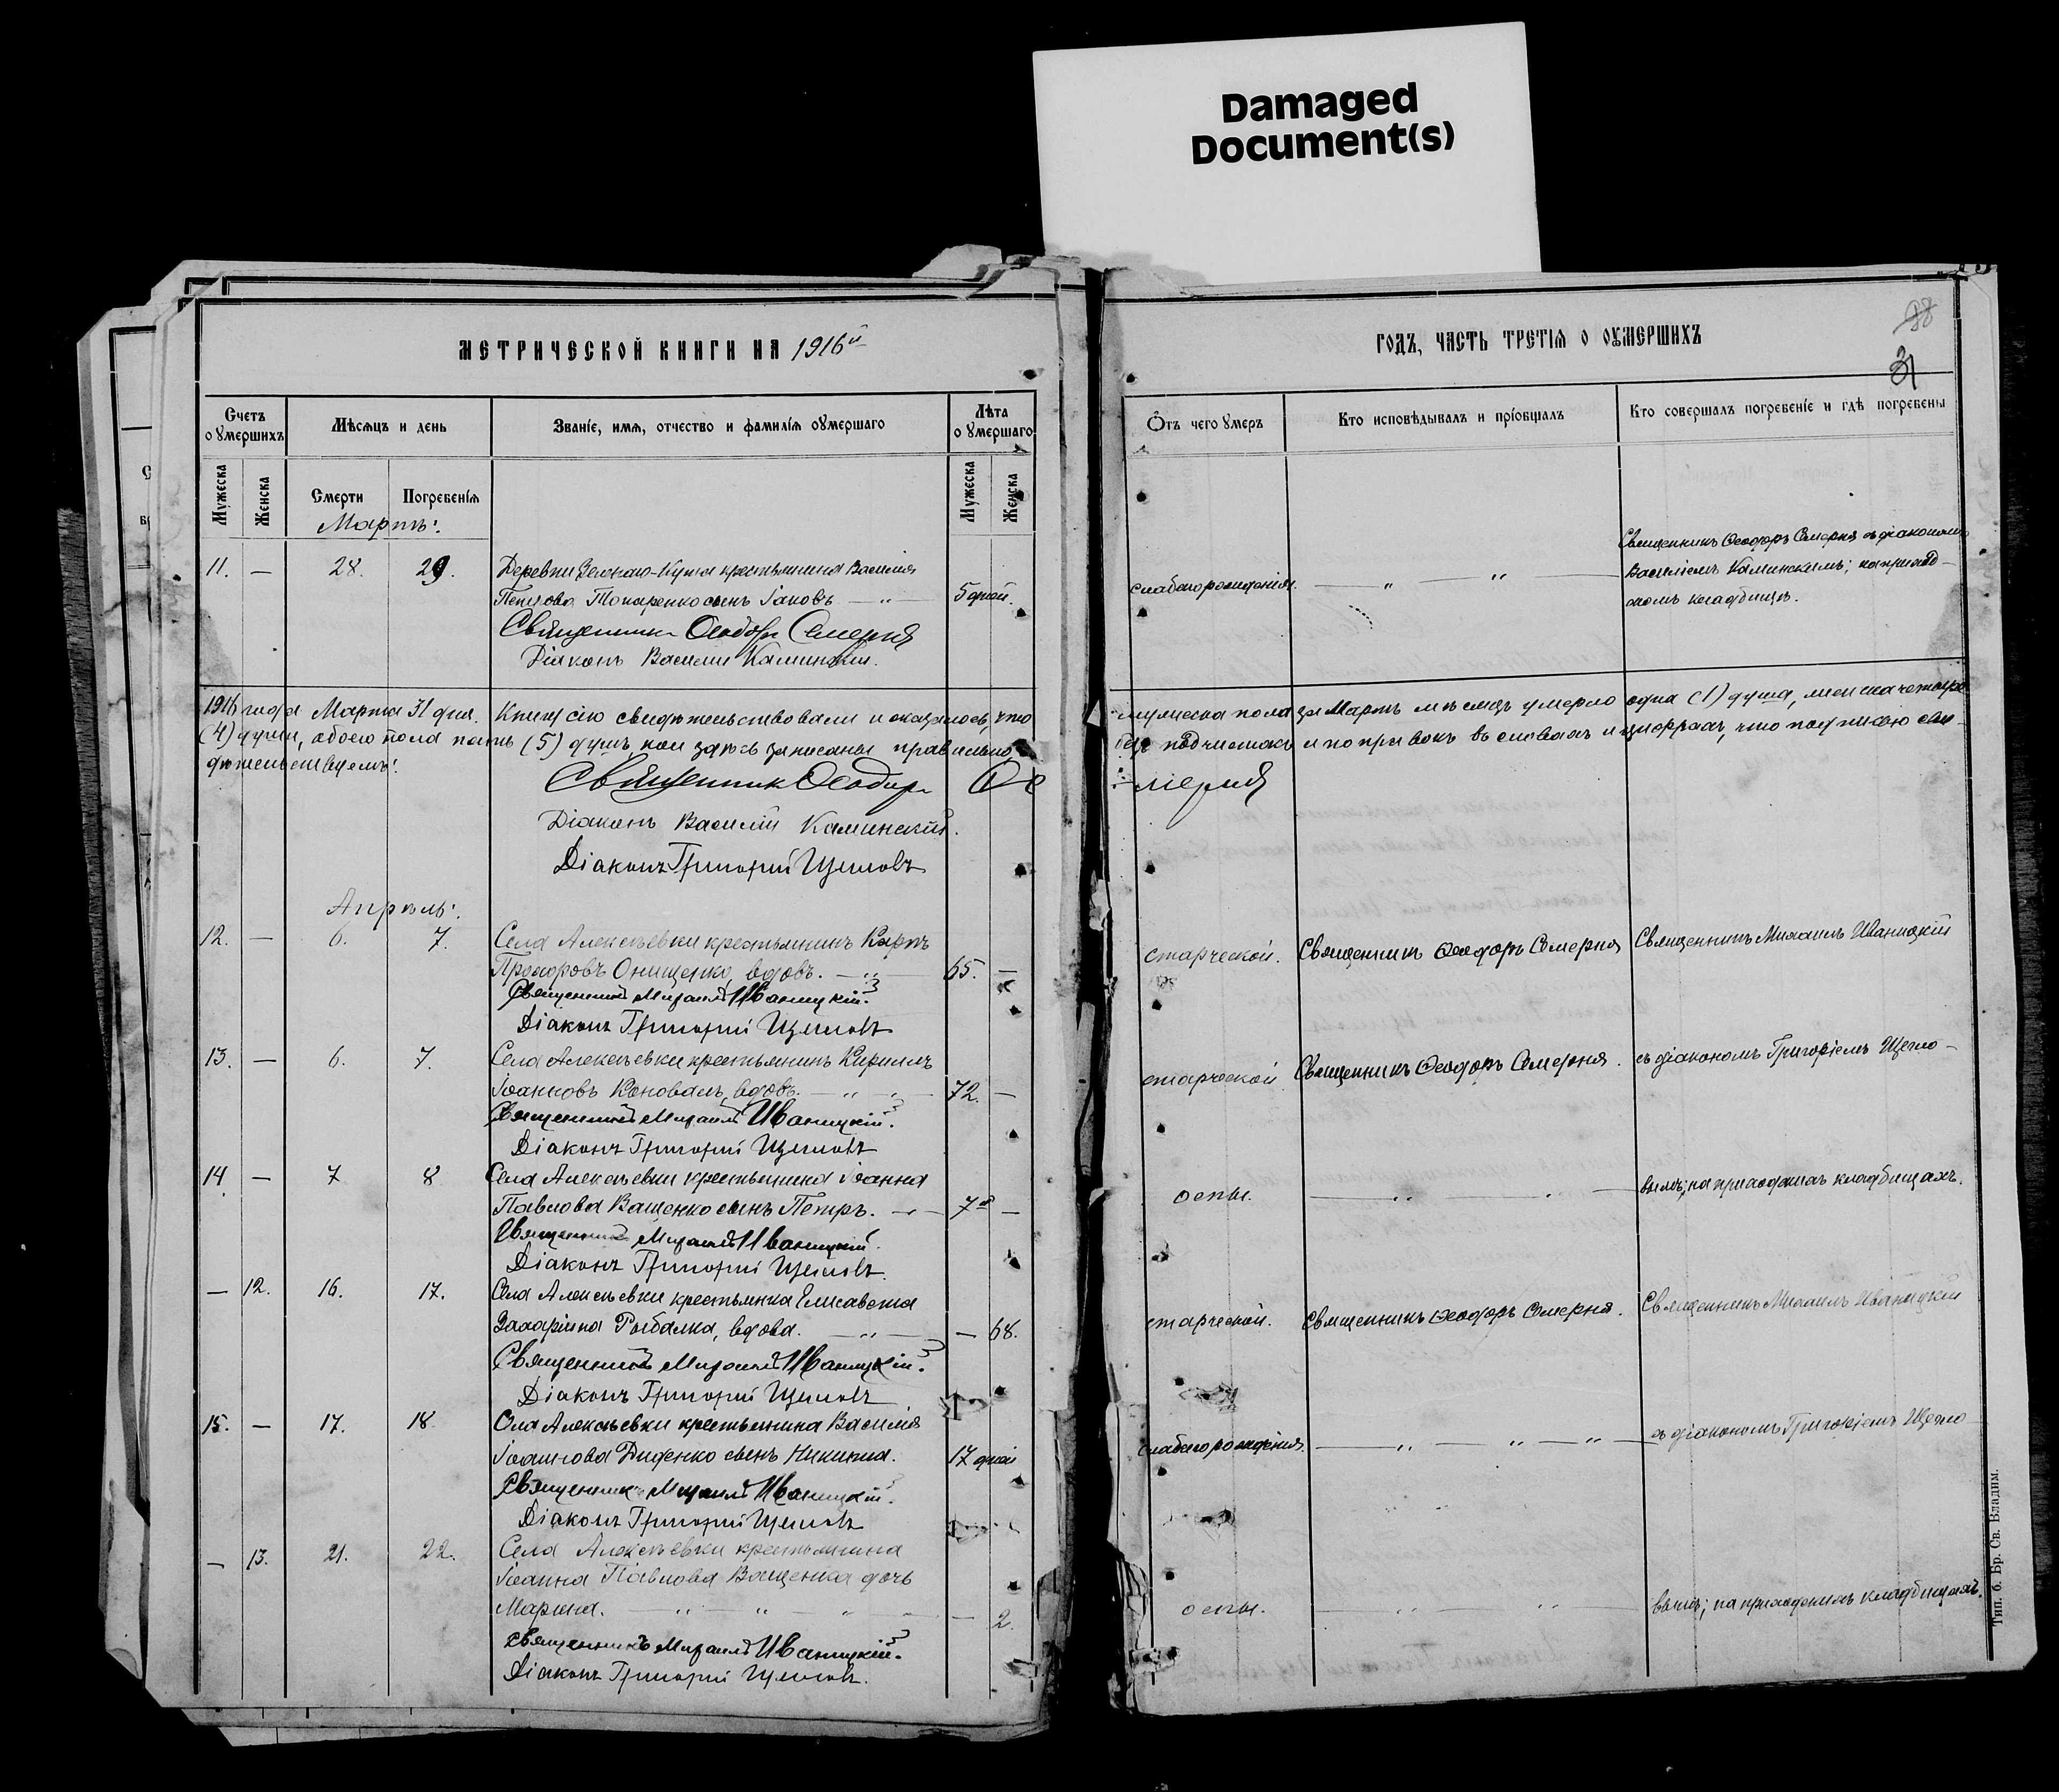 Damaged
Document(s)
МЕТРИЧЕСКОЙ КНИГИ НА 1916й
Счетъ о умершихъ
Мѣсяцъ и день
Званіе, имя, отчество и фамилія оумершаго
Лѣта о умершаго
Мужеска
Женска
Смерти
Погребенія
Мужеска
Женска
Мартъ:
11. — 28. 29. Деревни Зеленаго-Кута крестьянина Василія
Токаренко сынъ Іаковъ — „ — 5 дней.
Священникъ Ѳеодоръ Семерня
Діаконъ Василій Каминскій.
1916 года Марта 31 дня. Книгу сію свидѣтельствовали и оказалось, что
(4) души, обоего пола пять (5) душъ, кои здѣсь записаны правильно,
дѣтельствуемъ:
Священникъ Ѳеодоръ Се
Діаконъ Василій Каминскій.
Діаконъ Григорій Щегловъ
Апрѣль:
12. — 6. 7. Села Алексѣевки крестьянинъ Карпъ
Прохоровъ Онищенко, вдовъ. — „ — 65. —
Священникъ Михаилъ Иваницкій.
Діаконъ Григорій Щегловъ
13. — 6. 7. Села Алексѣевки крестьянинъ Кириллъ
Іоанновъ Коновалъ, вдовъ. — „ — 72. —
Священникъ Михаилъ Иваницкій.
Діаконъ Григорій Щегловъ
14. — 7 8 Села Алексѣевки крестьянина Іоанна
Павлова Ващенко сынъ Петръ. — — 7 —
Священникъ Михаилъ Иваницкій.
Діаконъ Григорій Щегловъ.
— 12. 16. 17. Села Алексѣевки крестьянка Елисавета
Захаріина Рыбалка, вдова. — „ — — 68.
Священникъ Михаилъ Иваницкій.
Діаконъ Григорій Щегловъ
15. — 17. 18. Села Алексѣевки крестьянина Василія
Іоаннова Диденко сынъ Никита. 17 дней
Священникъ Михаилъ Иваницкій.
Діаконъ Григорій Щегловъ
— 13. 21. 22. Села Алексѣевки крестьянина
Іоанна Павлова Ващенка дочь
Марина. — „ — „ — „ — 2.
Священникъ Михаилъ Иваницкій.
Діаконъ Григорій Щегловъ.
38
31
ГОДЪ, ЧАСТЬ ТРЕТІЯ О ОУМЕРШИХЪ
Отъ чего умеръ
Кто исповѣдывалъ и пріобщалъ
Кто совершалъ погребеніе и гдѣ погребены
Священникъ Ѳеодоръ Семерня съ діакономъ
слабаго рожденія. — „ — „ — Василіемъ Каминскимъ; на приход-
скомъ кладбищѣ.
мужеска пола за Мартъ мѣсяцъ умерло одна (1) душа, женска четыре
безъ подчистокъ и поправокъ въ словахъ и цифрахъ, что подписью сви-
-мерня
старческой. Священникъ Ѳеодоръ Семерня Священникъ Михаилъ Иваницкій
старческой Священникъ Ѳеодоръ Семерня. съ діакономъ Григоріемъ Щегло-
оспы. — „ — „ — вымъ; на приходскихъ кладбищахъ.
старческой. Священникъ Ѳеодоръ Семерня. Священникъ Михаилъ Иваницкій
слабаго рожденія. — „ — „ — „ — съ діакономъ Григоріемъ Щегло-
оспы. — „ — „ — вымъ; на приходскихъ кладбищахъ.
Тип. б. Бр. Св. Владим.